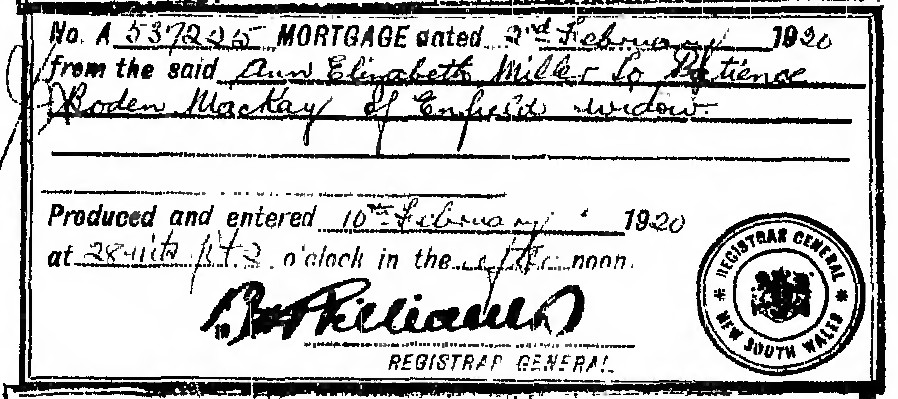 No. A 537225 MORTGAGE dated 2nd February 1920
from the said Ann Elizabeth Miller to Patience
Boden MacKay of Enfield widow.
Produced and entered 10th February 1920
at 28 mts pt 2 o'clock in the after noon.
REGISTRAR GENERAL
REGISTRAR GENERAL
NEW SOUTH WALES